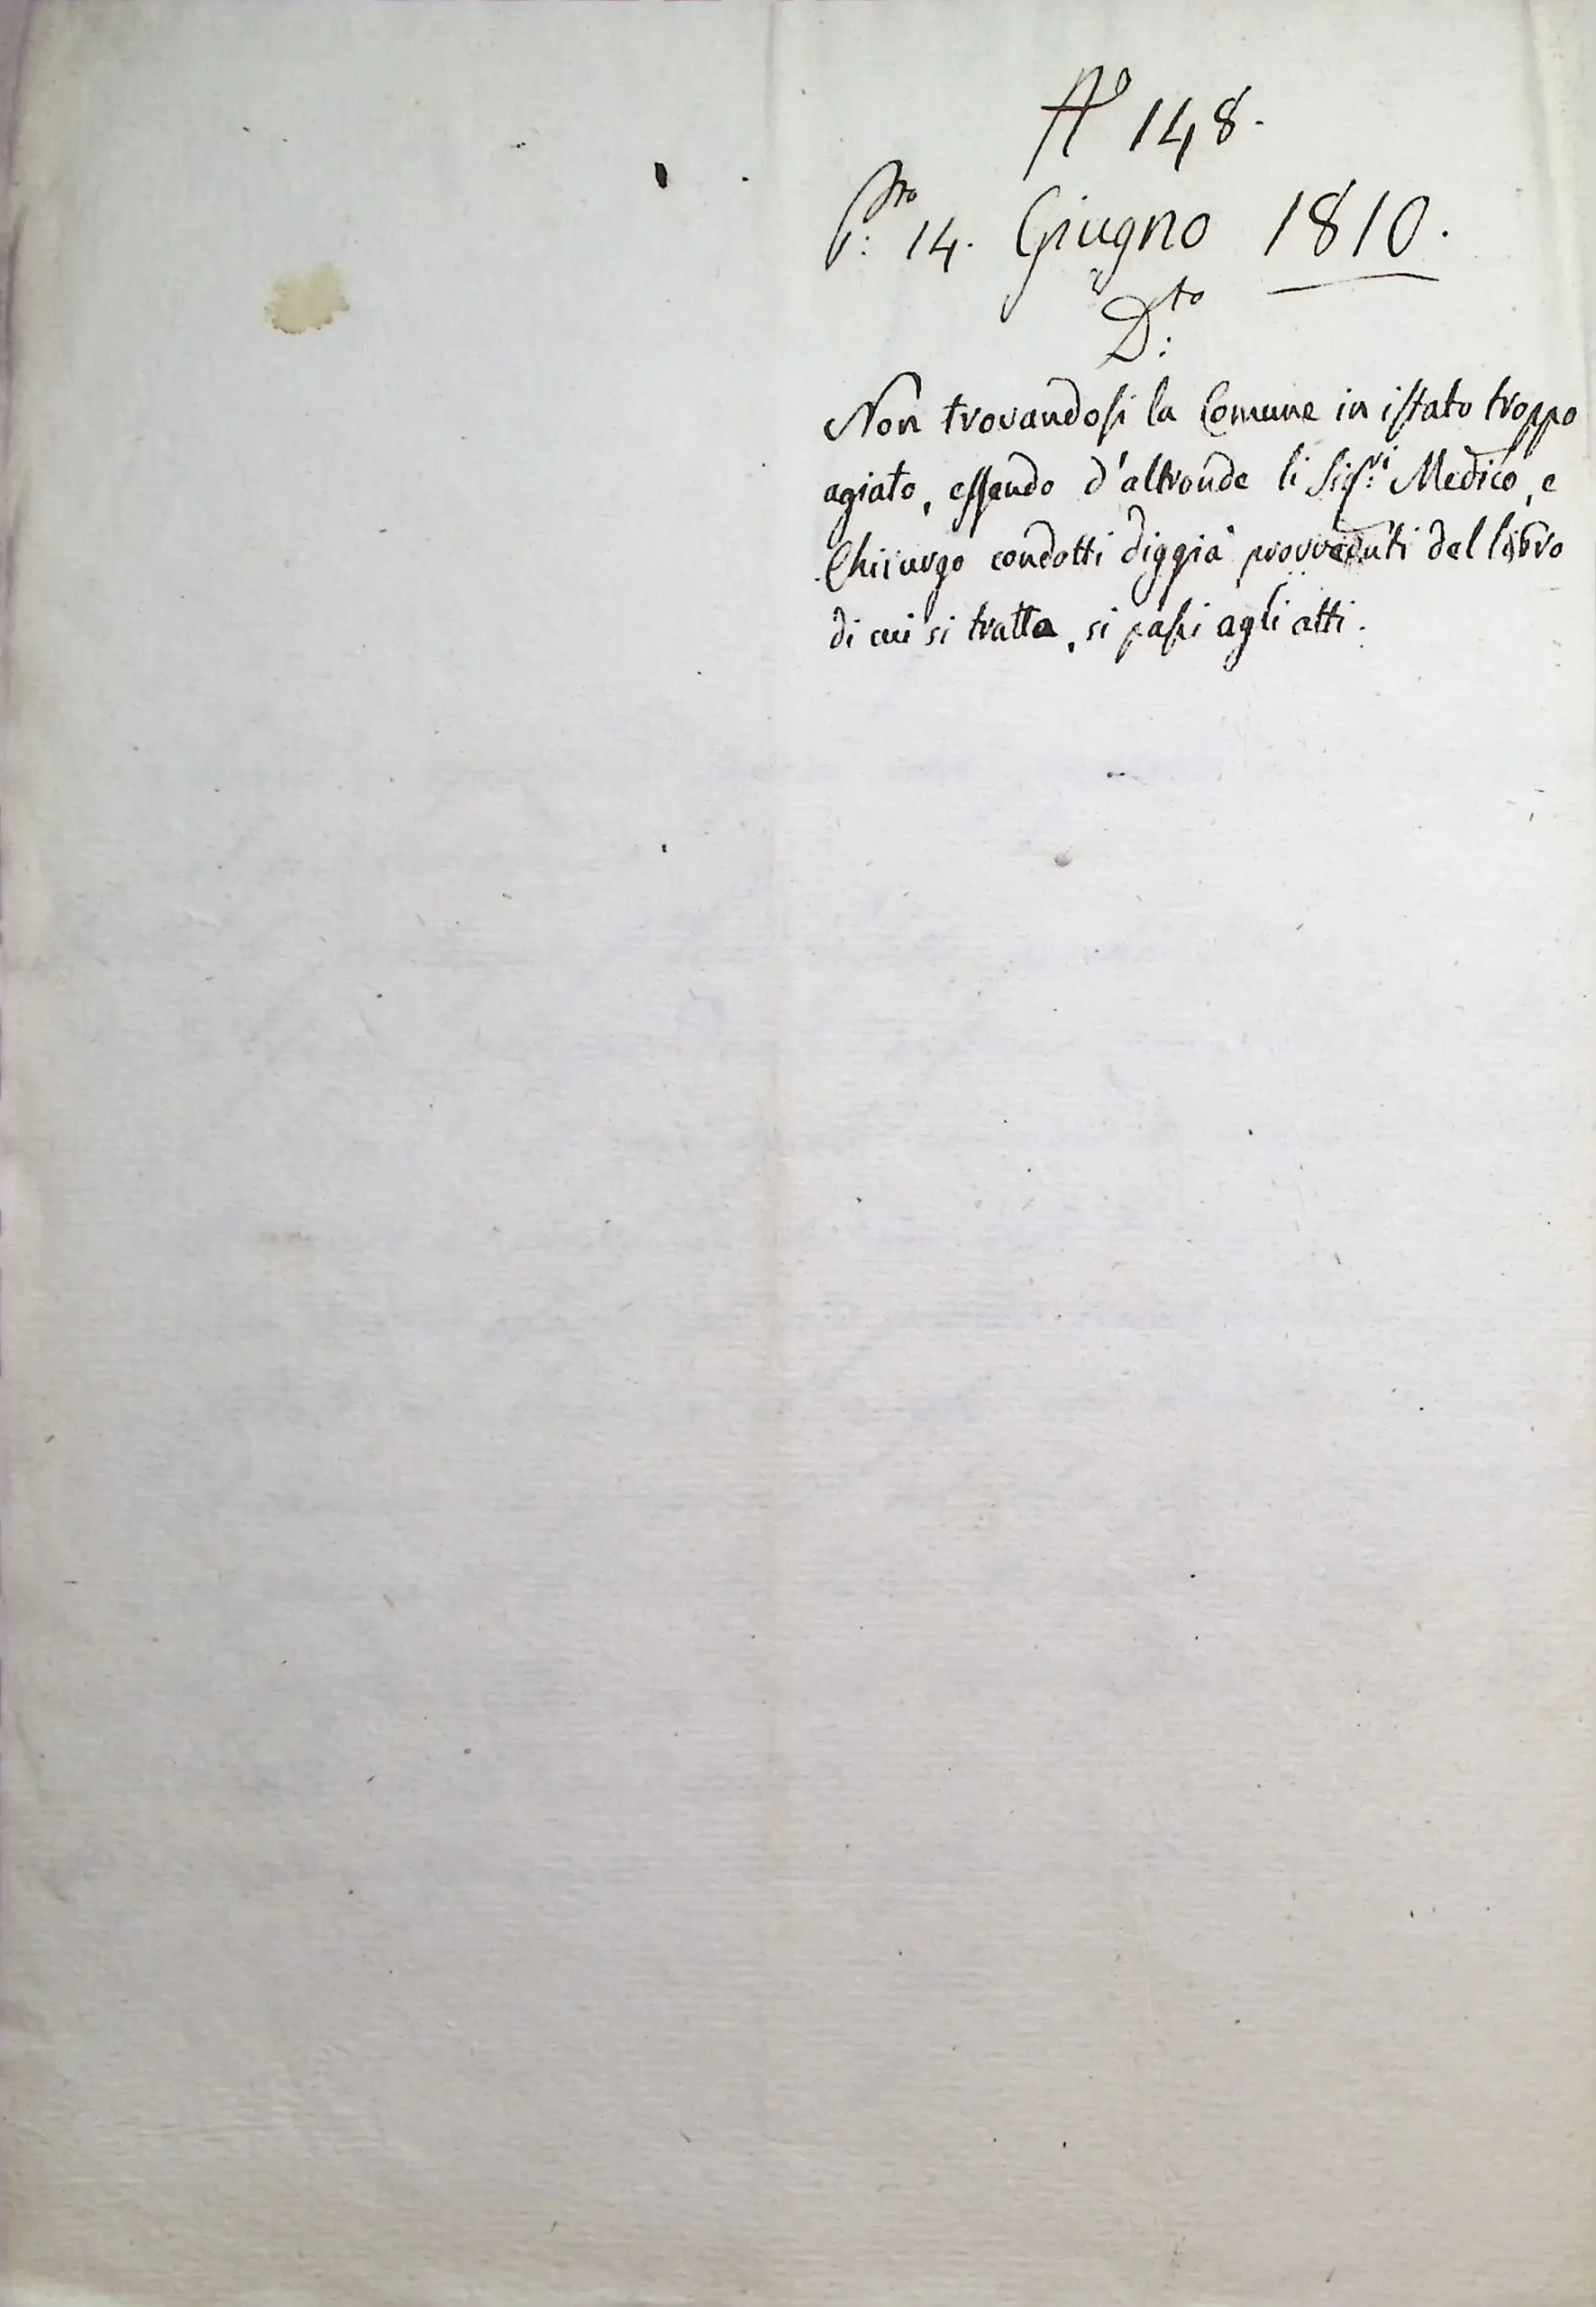 N° 148.
P:to 14. Giugno 1810.
D:to
Non trovandosi la Comune in istato troppo
agiato, essendo d'altronde li Sig:ri Medico, e
Chirurgo condotti diggià provveduti del libro
di cui si tratta, si passi agli atti.